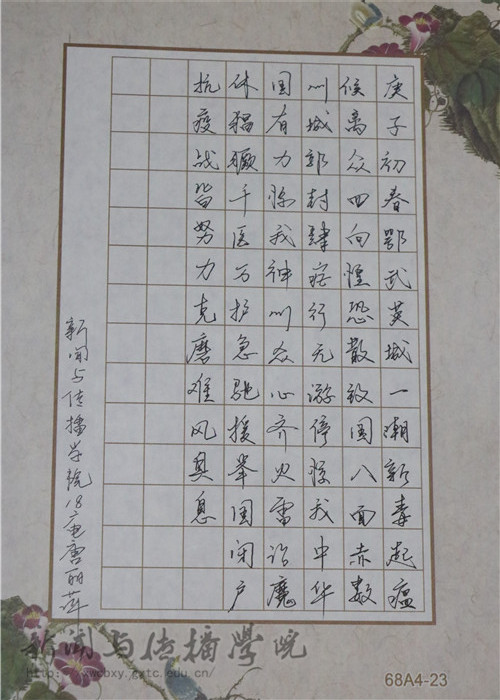 庚子初春鄂武英城一潮新毒起瘟
候离众四向惶恐散致困八面赤数
川城郭封肆茫行无游停惊我中华
国有力悌我神川众心齐火雷诒魔
休猖獗千医万护急驰援举国闭户
抗疫战皆努力克磨难风臭息
新闻与传播学院18广电唐丽萍
新闻与传播学院
68A4-23